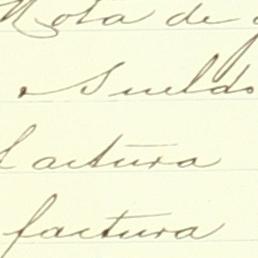 Nota de
Sueldo
factura
factura